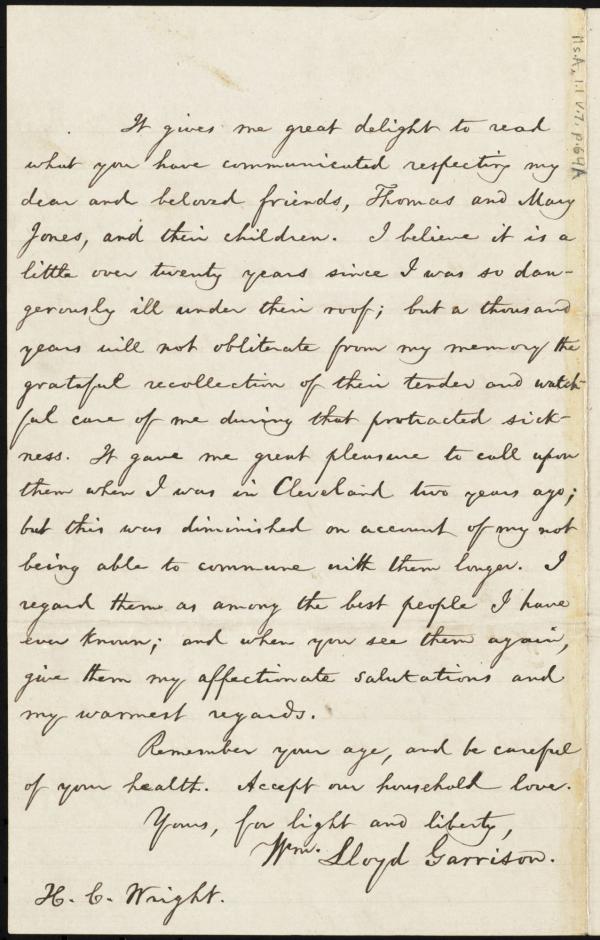 Ms. A. 1.1 V.7, p.64A
It gives me great delight to read
what you have communicated respecting my
dear and beloved friends, Thomas and Mary
Jones, and their children. I believe it is a
little over twenty years since I was so dan-
gerously ill under their roof; but a thousand
years will not obliterate from my memory the
grateful recollection of their tender and watch-
ful care of me during that protracted sick-
ness. It gave me great pleasure to call upon
them when I was in Cleveland two years ago;
but this was diminished on account of my not
being able to commune with them longer. I
regard them as among the best people I have
ever known; and when you see them again,
give them my affectionate salutations and
my warmest regards.
Remember your age, and be careful
of your health. Accept our household love.
Yours, for light and liberty,
Wm. Lloyd Garrison.
H. C. Wright.